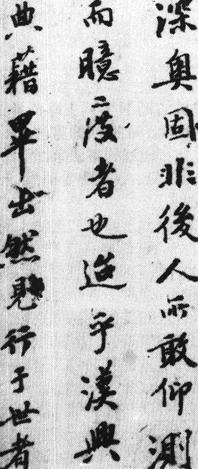 深奥固非後人所敢仰測
而臆度者也迨乎漢興
典藉畢出然見行于世者